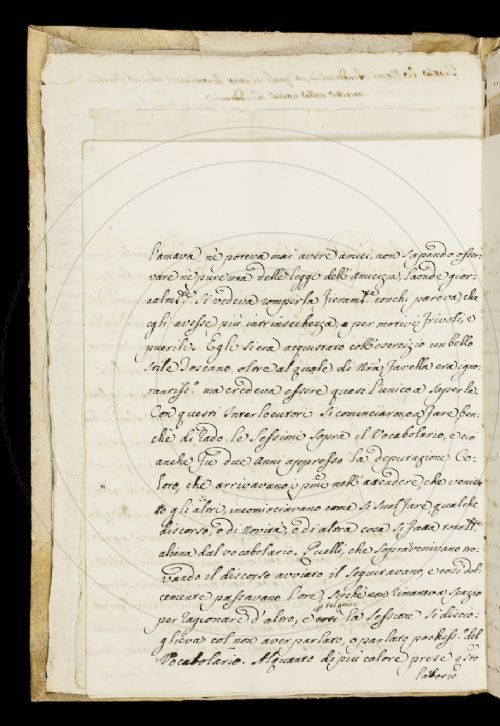 l'amava, nè poteva mai avere amici, non sapendo osser-
vare nè pure una delle legge dell'amicizia, laonde gior-
nalm.te si vedeva romperla fieram.te con chi pareva, che
egli avesse più intrinsechezza, e per motivi frivoli, e
puerili. Egli si era acquistato coll'esercizio un bello
stile Toscano, oltre al quale di n̄ra favella era igno-
rantiss.o ma credeva essere quasi l'unico a saperla.
Con questi Interlocutori si cominciarono a fare ben-
chè di rado le Sessioni sopra il Vocabolario, e ciò
anche fu due anni appresso la deputazione. Co-
loro, che arrivavano i primi nell'attendere che venis-
gli altri, incominciavano come si suol fare qualche
discorso, o di novità, o di altra cosa si fatta
aliena dal vocabolario. Quelli, che sopravenivano tro-
vando il discorso avviato il seguitavano, e così dol-
cemente passavano l'ore, sicchè non rimaneva spazio
per ragionare d'altro, e la Sessione si discio-
glieva col non aver parlato, o parlato pochiss.o del
Vocabolario. Alquanto di più calore prese q.sto